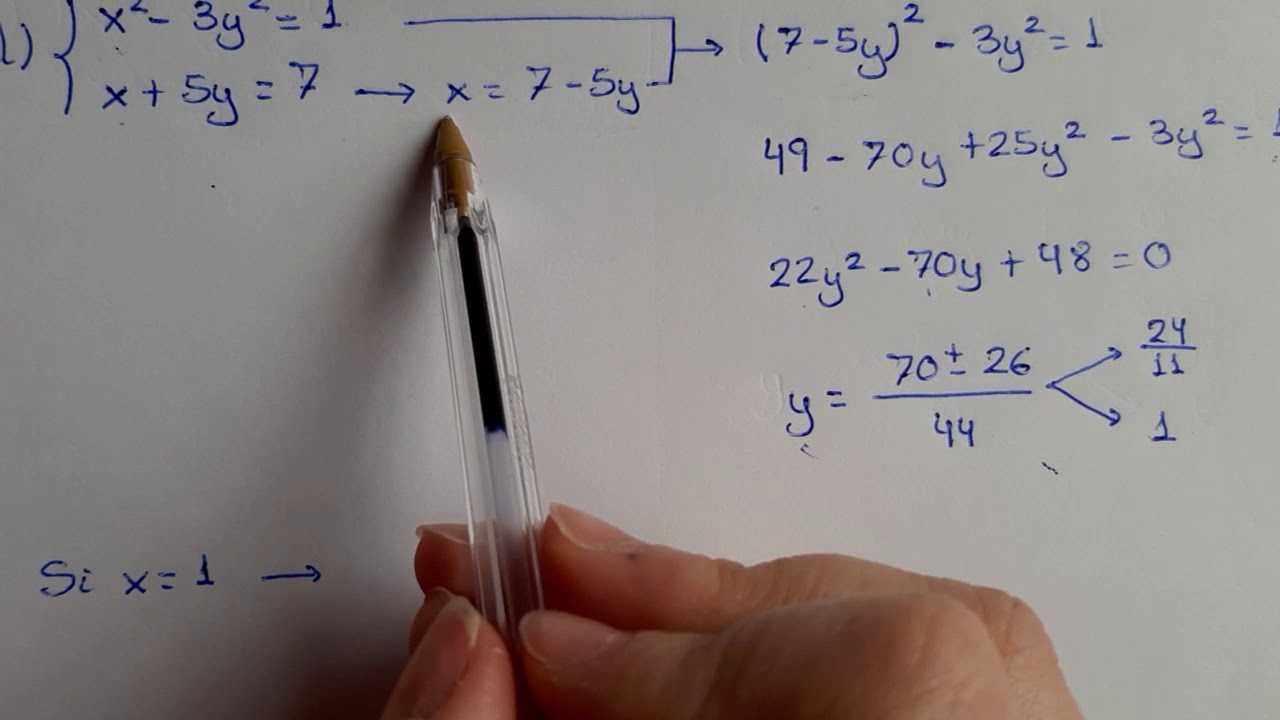 1) { x² - 3y² = 1
x + 5y = 7 → x = 7 - 5y
→ (7 - 5y)² - 3y² = 1
49 - 70y + 25y² - 3y² = 1
22y² - 70y + 48 = 0
y = (70 ± 26)/44
24/11
1
Si x = 1 →